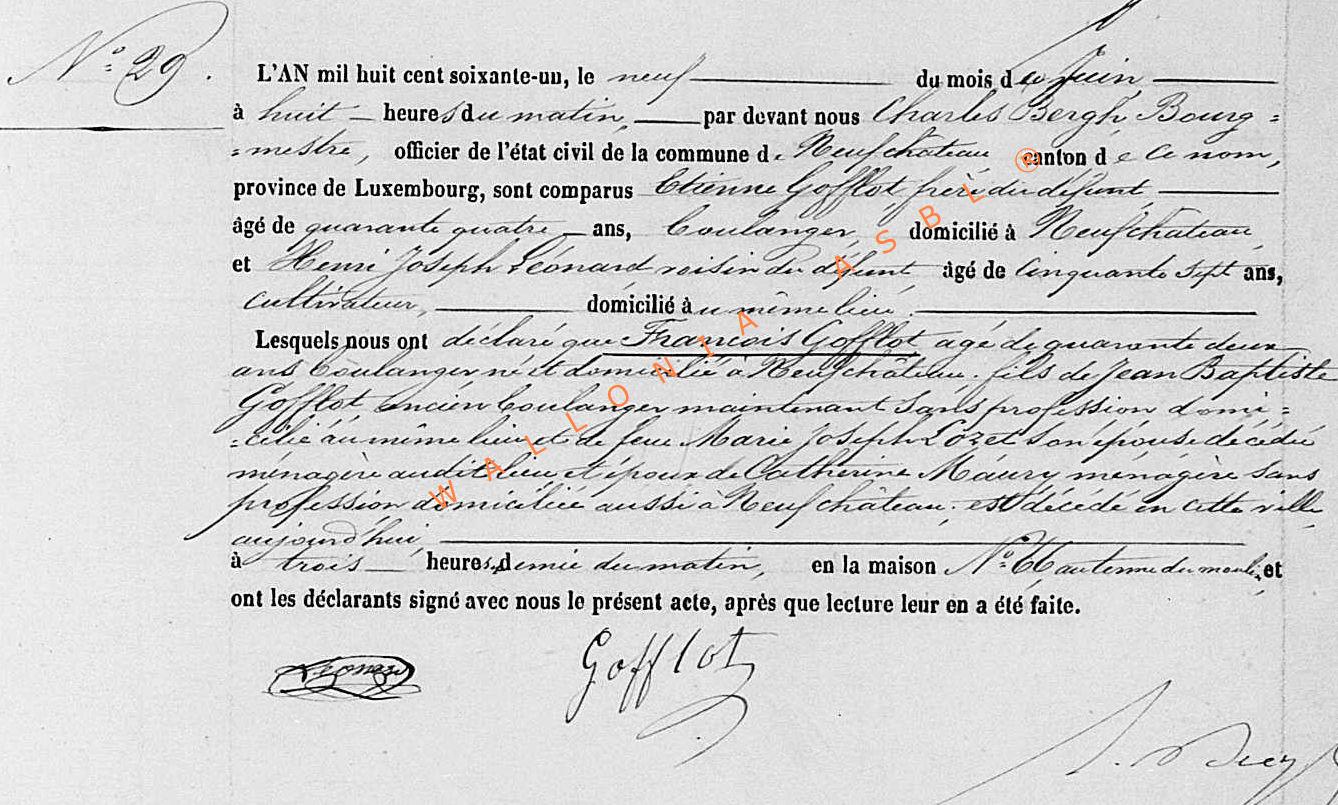 N° 29.
L'AN mil huit cent soixante-un, le neuf du mois de Juin
à huit heures du matin, par devant nous Charles Bergh, Bourg =
= mestre, officier de l'état civil de la commune de Neufchateau canton de ce nom,
province de Luxembourg, sont comparus Etienne Gofflot, frère du défunt,
âgé de quarante quatre ans, boulanger, domicilié à Neufchateau,
et Henri Joseph Léonard voisin du défunt, âgé de cinquante sept ans,
cultivateur, domicilié au même lieu.
Lesquels nous ont déclaré que François Gofflot agé de quarante deux
ans boulanger né et domicilié à Neufchâteau. fils de Jean Baptiste
Gofflot, ancien boulanger maintenant sans profession domi =
= cilié au même lieu et de feue Marie Joseph Lozet son épouse décédée
ménagère audit lieu et époux de Catherine Maury ménagère sans
profession domiciliée aussi à Neufchâteau. est décédé en cette ville
aujourd'hui
à trois heures demie du matin, en la maison N° du moulin, et
ont les déclarants signé avec nous le présent acte, après que lecture leur en a été faite.
Gofflot
WALLONIA ASBL ®